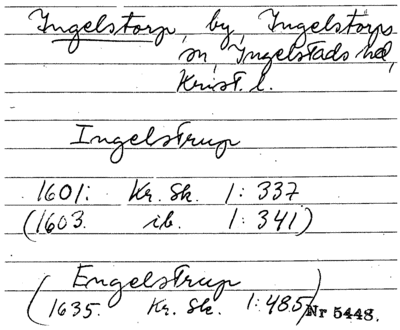 Ingelstorp, by, Ingelstorps
sn, Ingelstads hd,
Krist. l.
Ingelstrup
1601: Kr. Sk. 1: 337
(1603. ib. 1: 341)
Engelstrup
(1635. Kr. Sk. 1: 485)
Nr 5448.